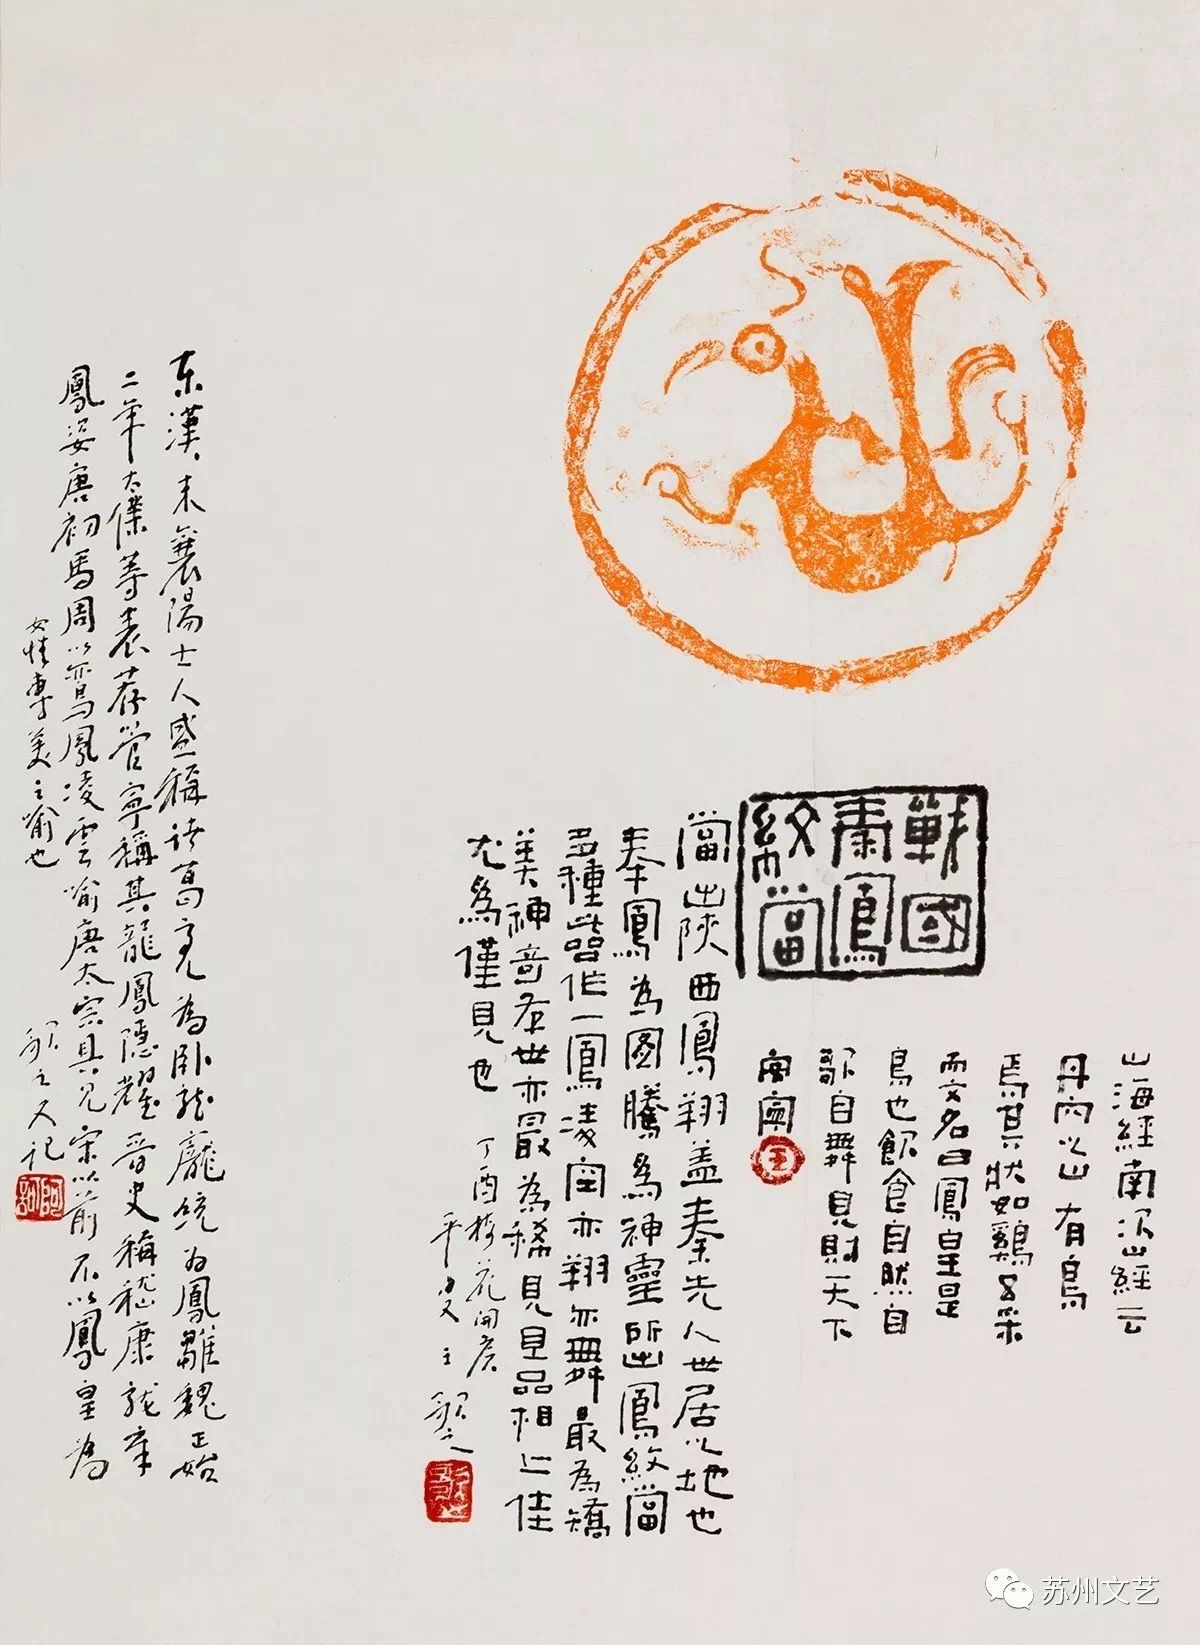 戰國
秦鳳
紋當
山海經南次山經云
丹穴之山有鳥
焉其狀如鷄五采
而文名曰鳳皇是
鳥也飲食自然自
歌自舞見則天下
安寧
當出陝西鳳翔蓋秦先人世居之地也
奉鳳為圖騰為神靈所出鳳紋當
多種此器作一鳳凌空亦翔亦舞最為矯
美神奇存世亦最為稀見且品相上佳
尤為僅見也 丁酉梅花開候
歌之
东漢末襄陽士人盛稱诸葛亮為卧龙龐统为鳳雛魏正始
二年太僕等表荐管寧稱其龍鳳隱耀晋史稱嵇康龙章
鳳姿唐初馬周以鸾鳳凌雲喻唐太宗具见宋以前不以鳳皇為
女性專美之喻也
歌之又记
苏州文艺